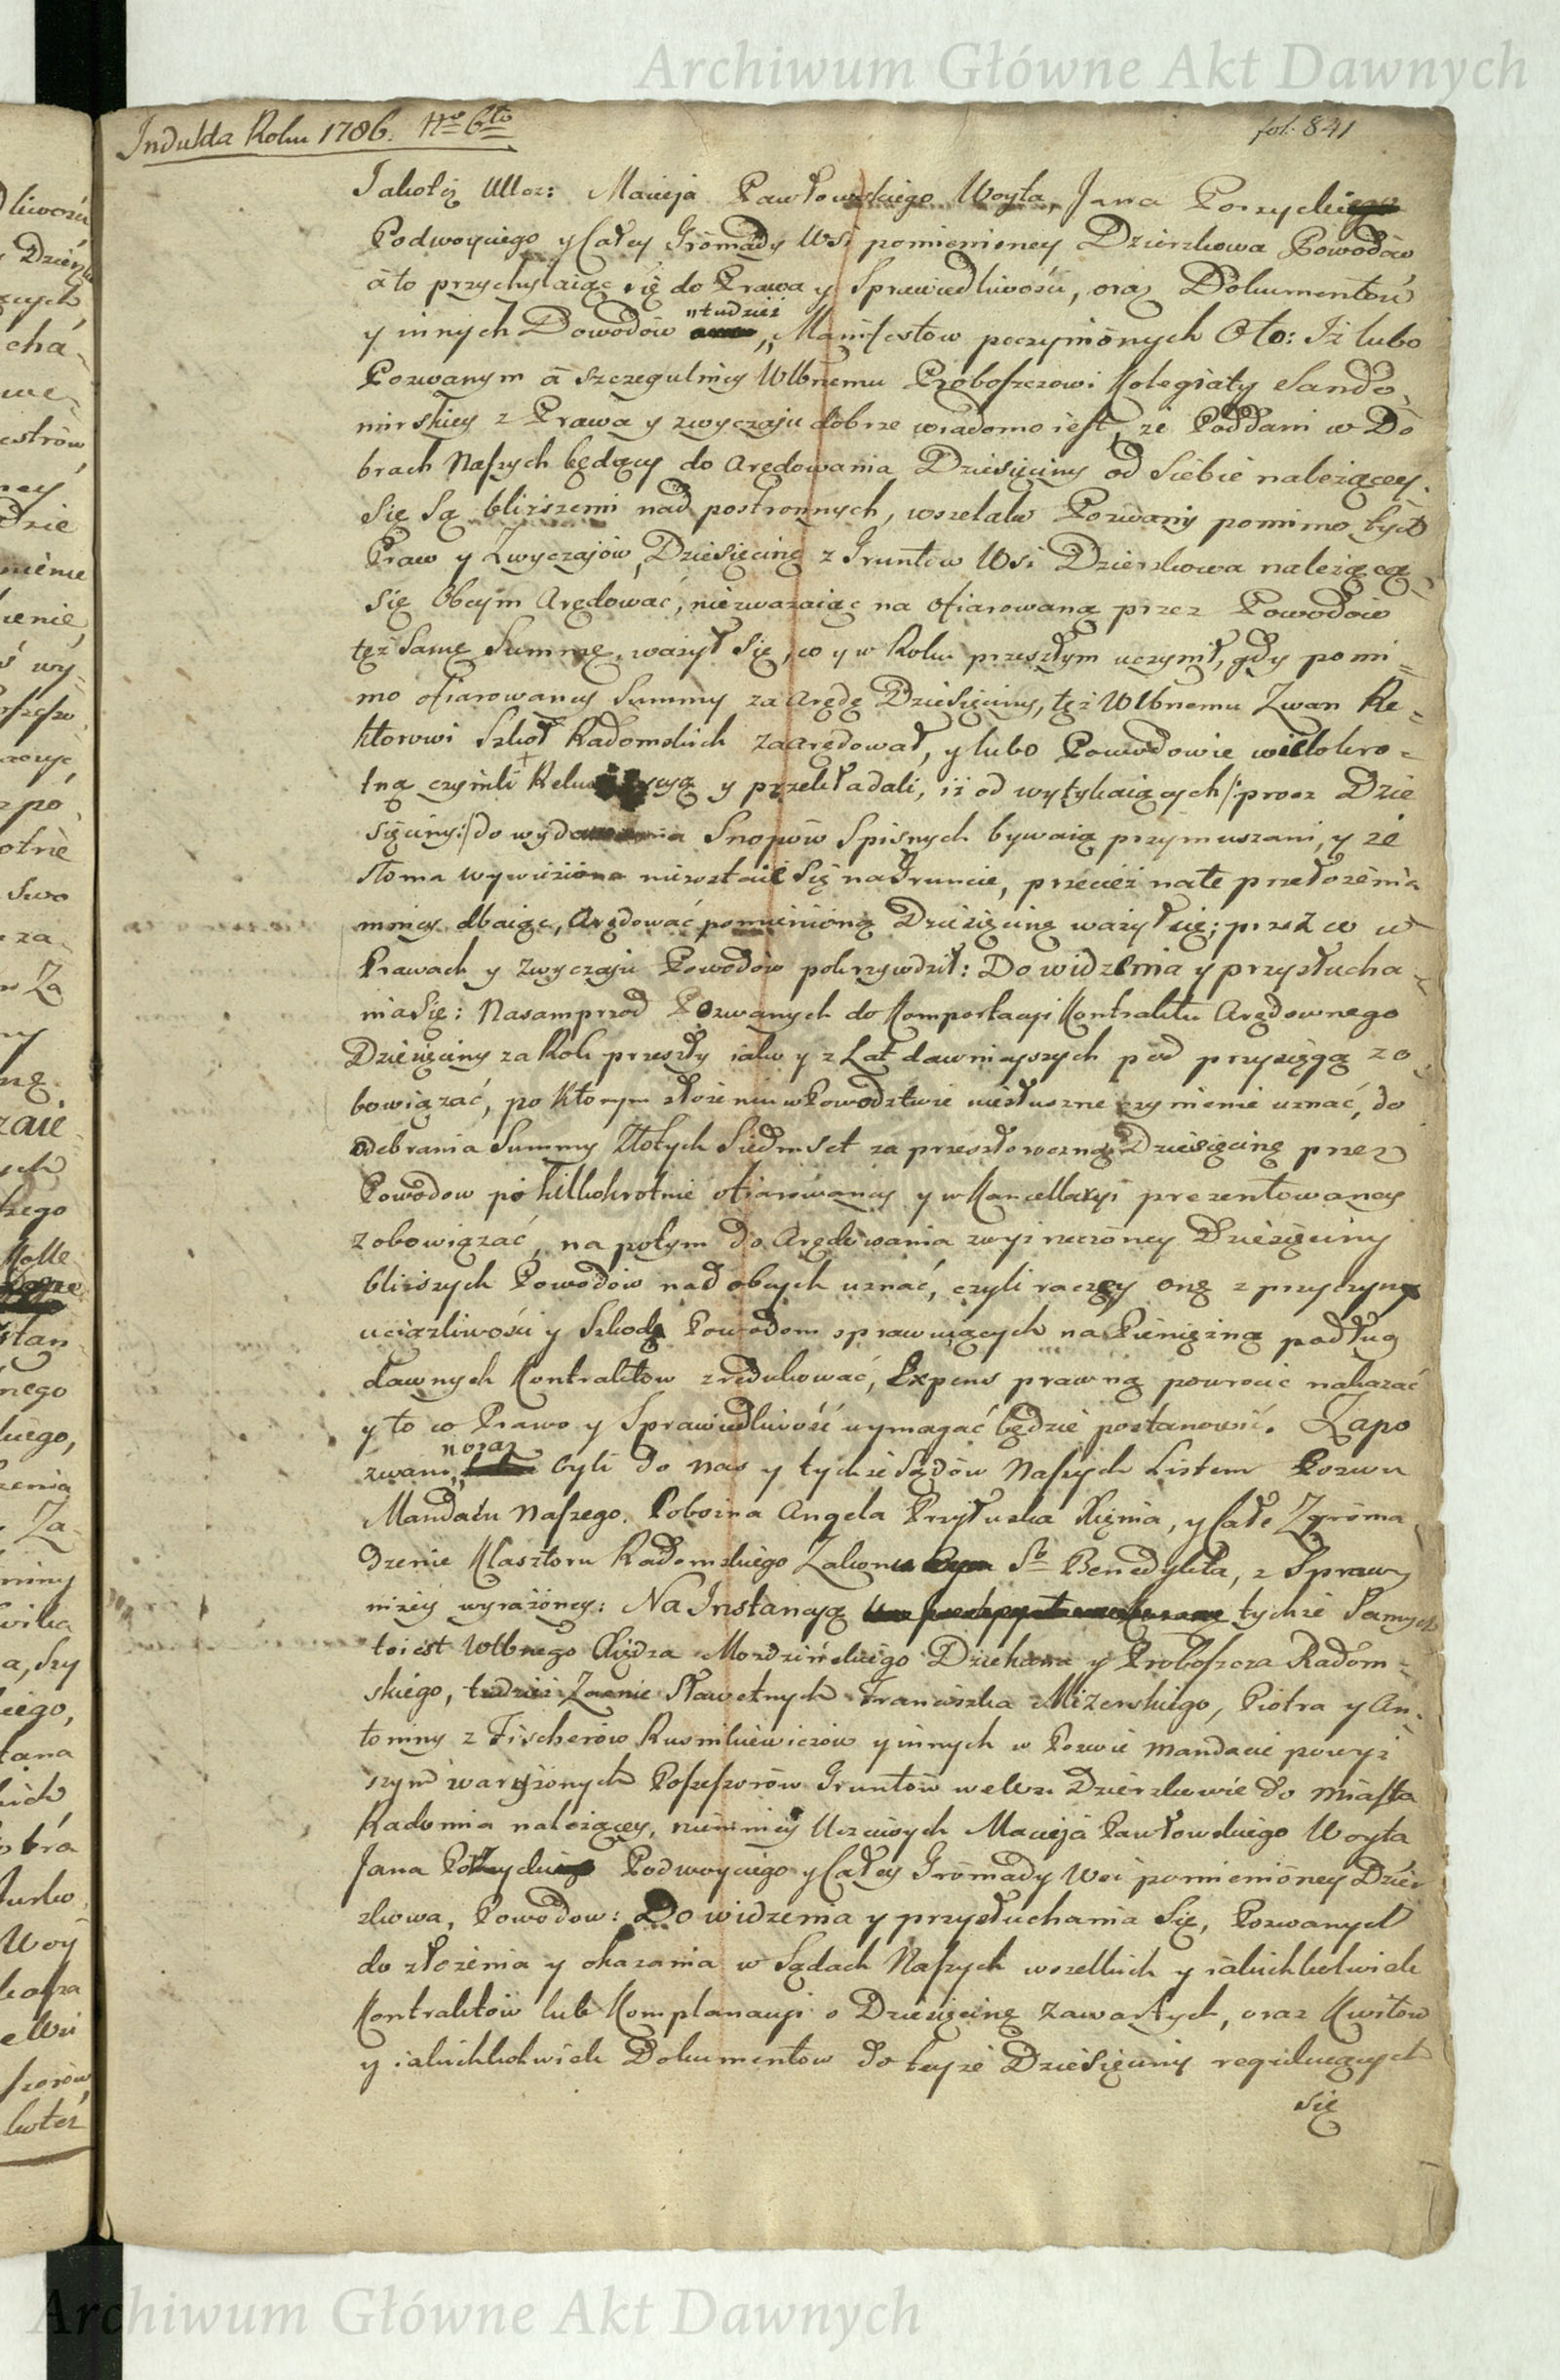 Archiwum Główne Akt Dawnych
Indukta Roku 1786. Nro 6to
fol. 841
Jakotéz Ucz: Macieja Pawłowskiego Woyta, Jana Porzyckiego
Podwoyciego y Całey Gromady Wsi pomienioney Dzierzkowa Powodów
à to przychylaiąc się do Prawa y Sprawiedliwości, oraz Dokumentów
y innych Dowodów tudziéż Manifestow poczynionych Oto: Iż lubo
Pozwanym à szczegulniey Wlbnemu Proboszczowi Kolegiaty Sando„
mirskiey z Prawa y zwyczaju dobrze wiadomo iest, ze Poddani w Do
brach Naszych będący do Arędowania Dziesięciny od siebie należącey
Się Są bliższemi nad postronnych, wszelako Pozwany pomimo tych
Praw y Zwyczajów, Dziesięcinę z Gruntow Wsi Dzierzkowa należącą
Się Obcym Arędować, niezwazaiąc na ofiarowaną przez Powodów
tęż Samę Summę, ważył Się, co y w Roku przeszłym uczynił, gdy pomi=
mo ofiarowaney Summy za Arędę Dziesięciny, tęż Wlbnemu Zwan Re=
ktorowi Szkoł Radomskich zaarędował, y lubo Powodowie wielokro=
tną czynili y przekładali, iż od wytykaiących /:proces Dzie
sięciny:/ do Snopów Spisnych bywaią przymuszani, y że
Słoma wywieziona niezostaie Się na Gruncie, przecież nate przełożenia
mniey dbaiąc, Arędować pomienioną Dziesięcinę ważył się; przez co w
Prawach y Zwyczaju Powodów pokrzywdził: Do widzenia y przysłucha„
nia Się: Nasamprzod Pozwanych do Komportacyi Kontraktu Arędownego
Dziesięciny za Rok przeszły iako y z Lat dawnieyszych pod przysięgą zo„
bowiązać, po ktorym złożeniu w Powodztwie niesłuszne czynienie uznać, do
odebrania Summy Złotych Siedmset za przeszłoroczną Dziesięcinę przez
Powodow po kilkokrotnie ofiarowaney y w Kancellaryi prezentowaney
zobowiązać, na potym do Arędowania zwyż rzeczoney Dziesięciny
bliższych Powodów nad obcych uznać, czyli raczey onę z przyczyny
uciązliwości y Szkody Powodom sprawuiących na Pieniężną podług
dawnych Kontraktow zredukować, Expens prawną powrocić nakazać
y to co Prawo y Sprawiedliwość wymagać będzie postanowić. Zapo
zwani, oraz byli do nas y tychże Sądów Naszych Listem Pozwu
Mandatu Naszego. Pobożna Angela Przyłuska Xięnia, y Całe Zgroma„
dzenie Klasztoru Radomskiego Zakonu So Benedykta, z Sprawy
niżey wyrażoney: Na Instancyą tychże Samych
toiest Wlbnego Xiędza Mozdzińskiego Dziekana y Proboszcza Radom=
skiego, tudzież Zacnie Sławetnych Franciszka Mizerskiego, Piotra y An„
toniny z Fischerów Kusmikiewiczów y innych w Pozwie Mandacie powyż
szym wyrażonych Possessorów Gruntów we Wsi Dzierzkowie do Miasta
Radomia należącey, niemniey Uczciwych Macieja Pawłowskiego Woyta
Jana Podwoyciego y Całey Gromady Wsi pomienioney Dzier
zkowa, Powodow: Do widzenia y przysłuchania Się, Pozwanych
do złożenia y okazania w Sądach Naszych wszelkich y iakichkolwiek
Kontraktów lub Komplanacyi o Dziesięcinę zawartych, oraz Kwitow
y iakichkolwiek Dokumentow do teyże Dziesięciny regulujących
się
Archiwum Główne Akt Dawnych